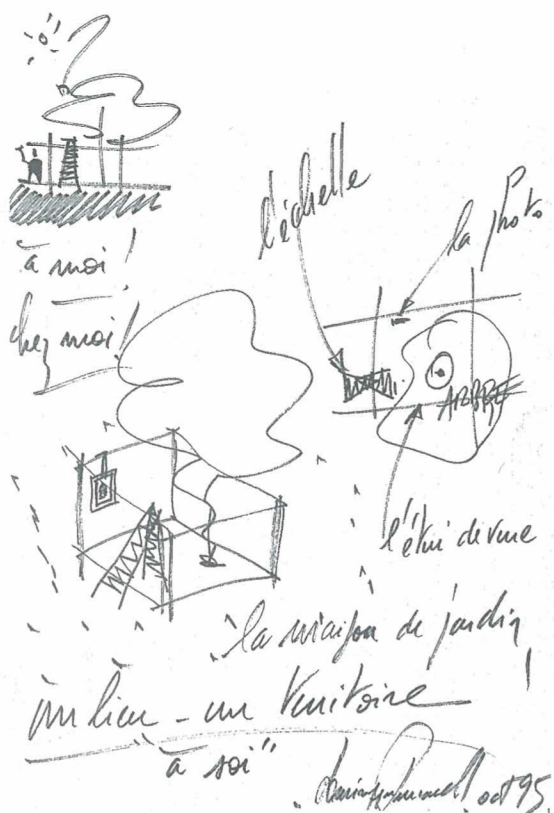 à moi !
chez moi !
l'échelle
la photo
ARBRE
l'étui de vue
la maison de jardin !
un lieu - un territoire
"à soi"
oct 95